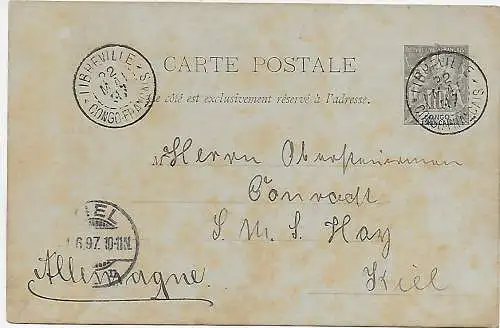 LIBREVILLE
22
MAI
97
CONGO-FRANÇAIS
CARTE POSTALE
Ce côté est exclusivement réservé à l'adresse.
LIBREVILLE
22
MAI
97
10
CONGO FRANÇAIS
M Herrn Obersteuermann
Conradt
S. M. S. Hay
Kiel
Allemagne.
KIEL
.6 97. 10-11N.